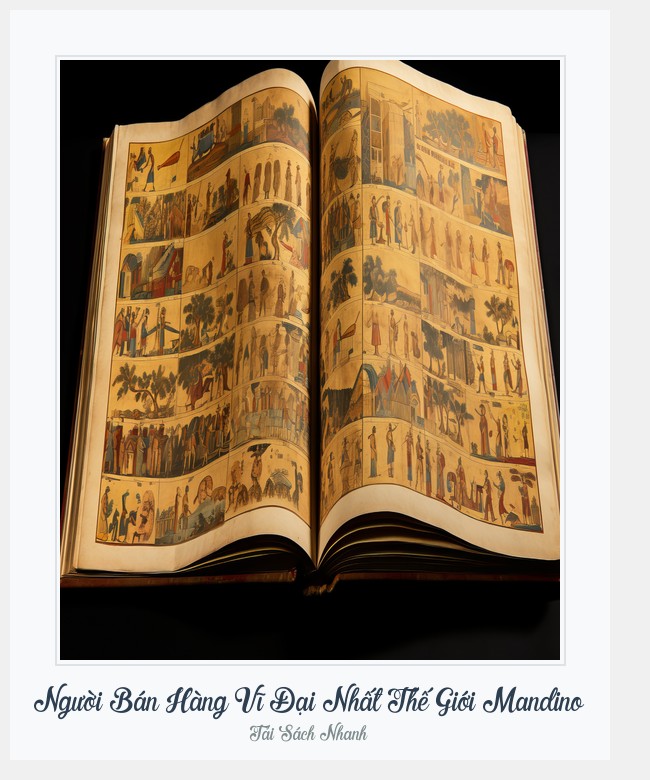 Người Bán Hàng Vĩ Đại Nhất Thế Giới Mandino
Tải Sách Nhanh